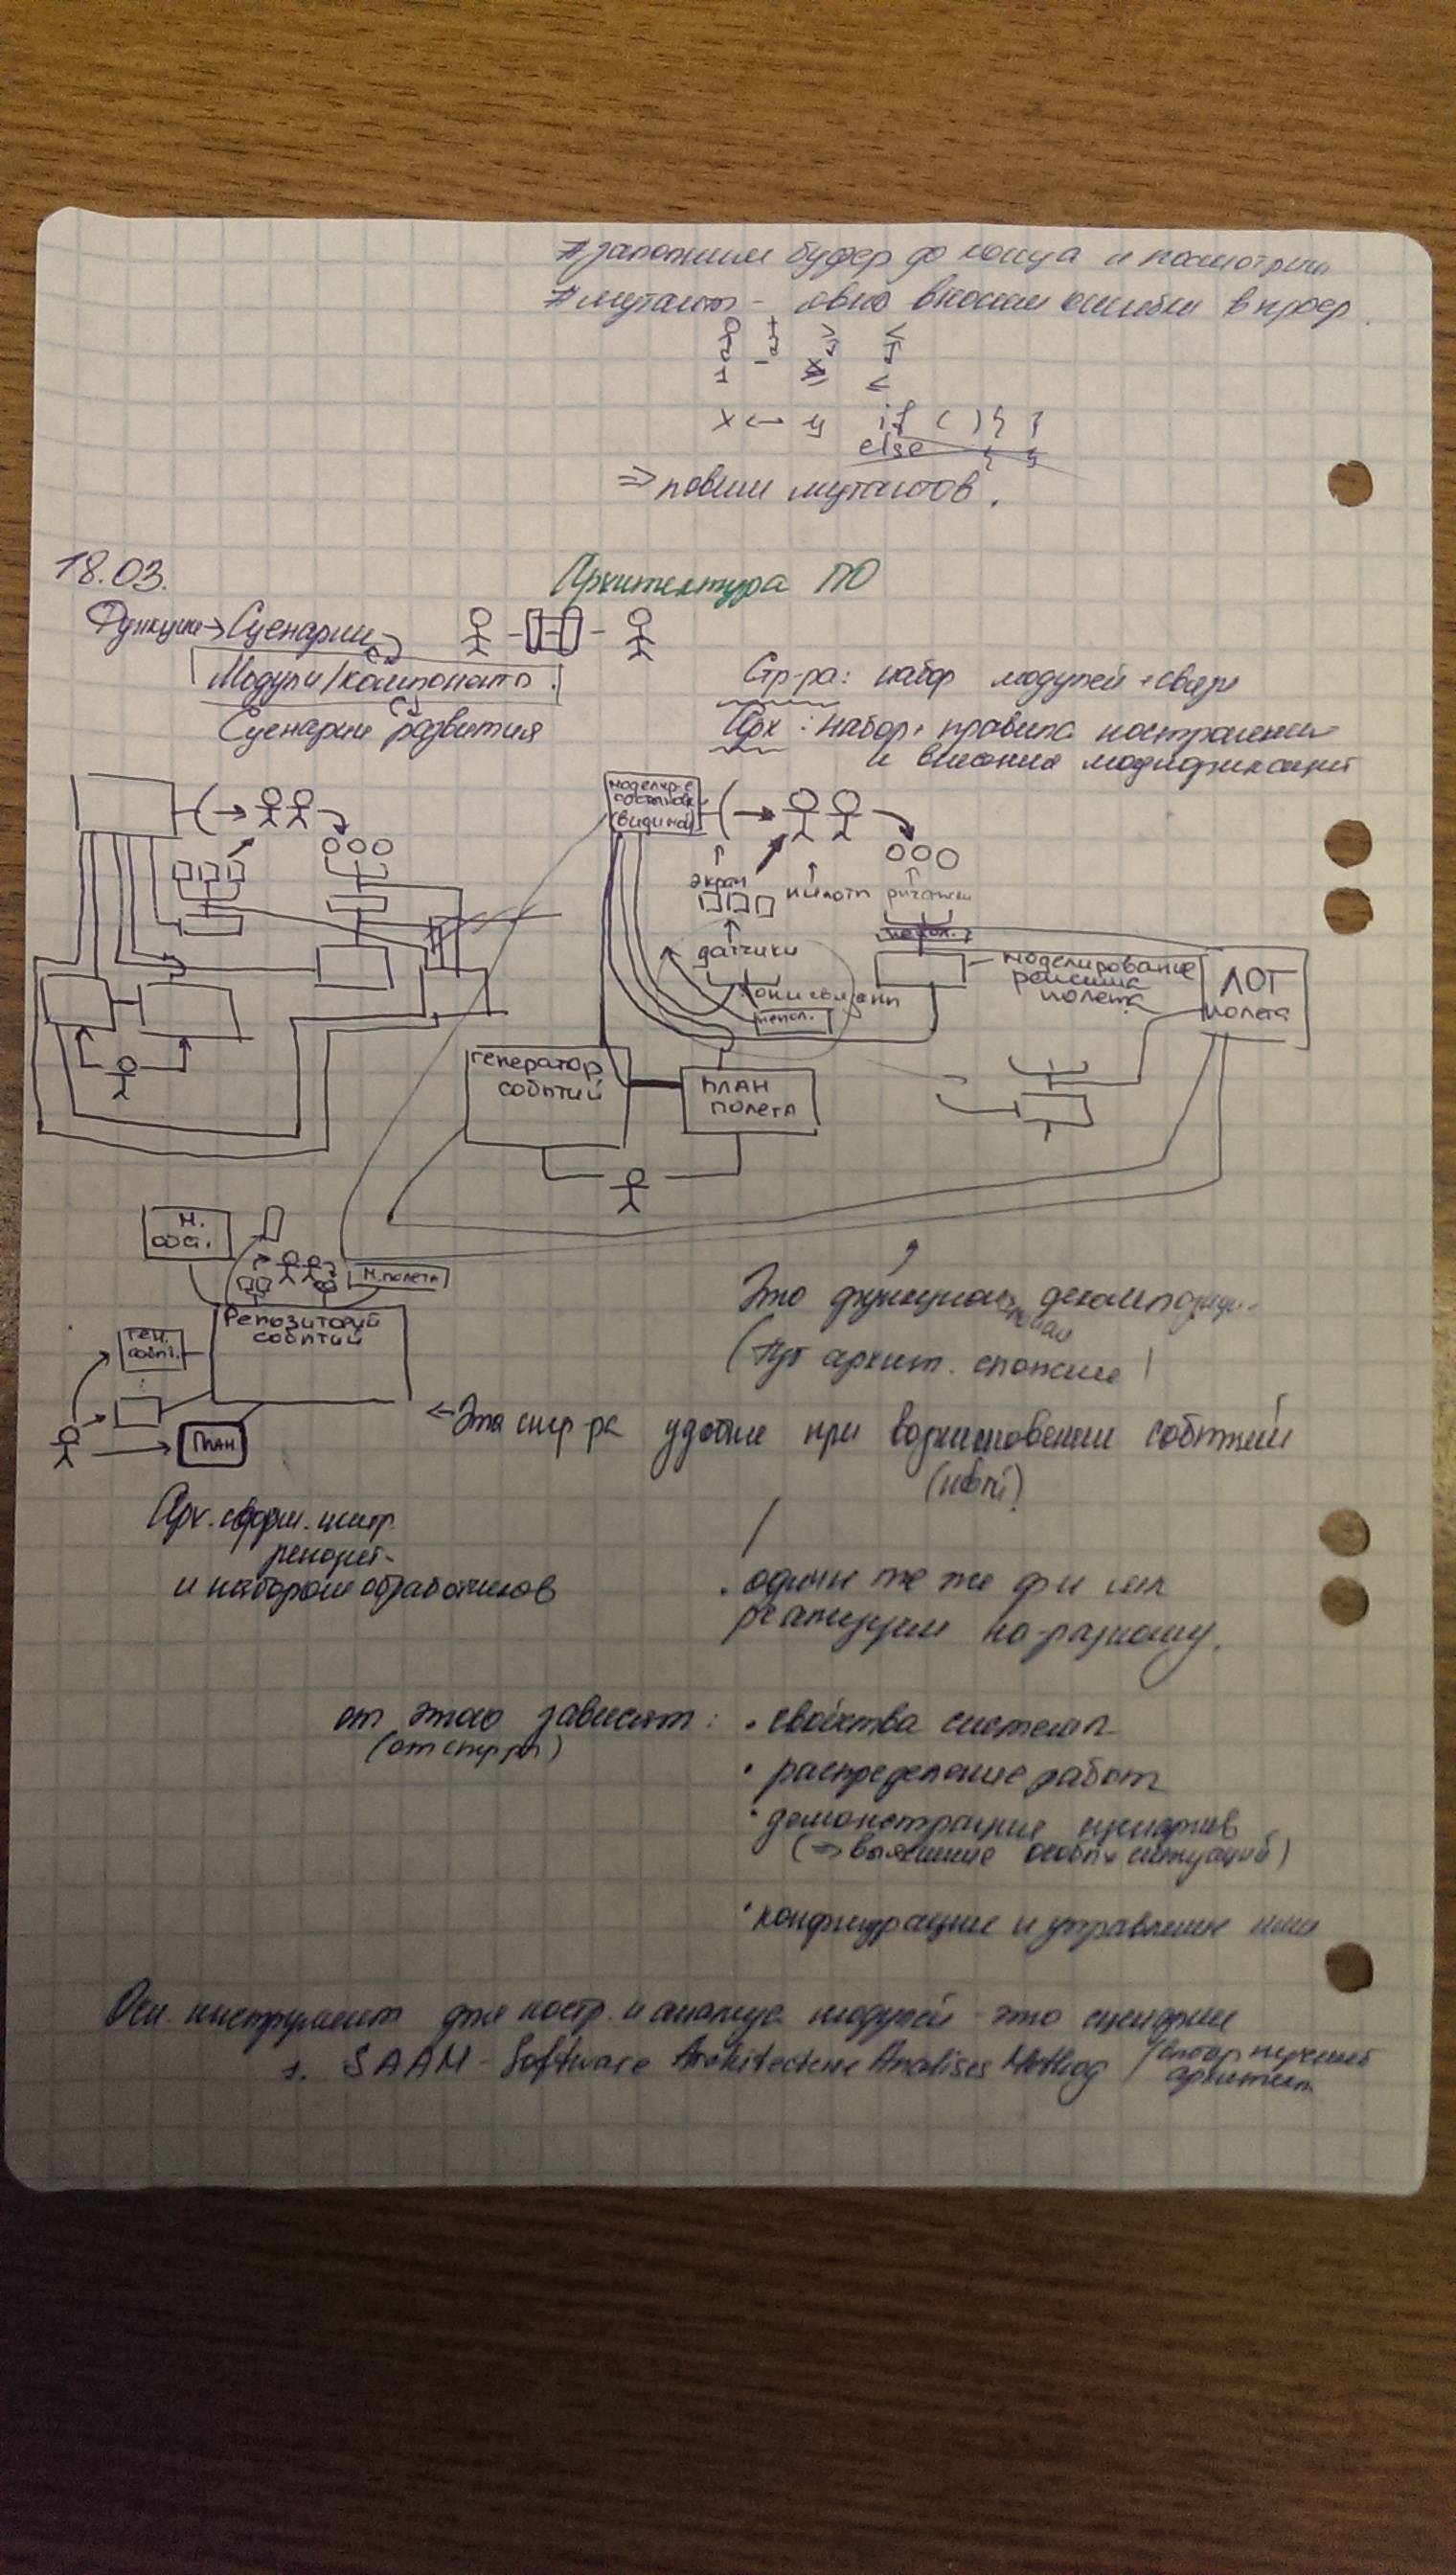 #заполним буфер до конца и посмотрим
#мутант - явно вносим ошибки в прогр.
+ > <
1 - ≤
x ↔ y if ( ) { }
else { }
⇒ ловим мутантов.
18.03.
Архитектура ПО
Функции → Сценарии
Модули/компоненты.
Сценарии развития
Стр-ра: набор модулей + связи
Арх: набор + правила построения
и внесения модификаций
моделир-е
обстановки
(видимой)
экран
пилоты
рычажки
датчики
они связаны
непол.
непол.
моделирование
режима
полета
ЛОГ
полета
генератор
событий
план
полета
М.
обст.
М.полета
Репозиторий
событий
ген.
событ.
План
Это функциональная декомпозиция
(Тут архит. сложнее
← Эта стр-ра удобнее при возникновении событий
(новый)
Арх. с форм. центр.
репозит-
и набором обработчиков
• одни и те же ф-и мы
реализуем по-разному.
от этого зависят:
(от стр-ры)
• свойства системы
• распределение работ
• демонстрация сценариев
(⇒ выяснение особых ситуаций)
• конфигурация и управление ими
Осн. инструмент для постр. и анализа модулей - это сценарии
1. SAAM - Software Architecture Analises Method /выбор лучшей
архитект.